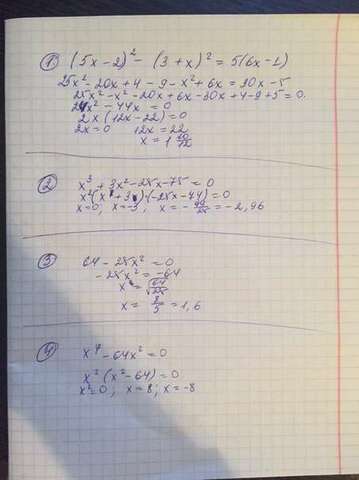 1) (5x-2)² - (3+x)² = 5(6x-1)
25x² - 20x + 4 - 9 - x² + 6x = 30x - 5
25x² - x² - 20x + 6x - 30x + 4 - 9 + 5 = 0
24x² - 44x = 0
2x (12x - 22) = 0
2x = 0 12x = 22
x = 1 10/12
2) x³ + 3x² - 25x - 75 = 0
x = 0; x = -3; x = - = -2,96
3) 64 - 25x² = 0
-25x² = -64
x = √64/25
x = 8/5 = 1,6
4) x⁴ - 64x² = 0
x² (x² - 64) = 0
x² = 0; x = 8; x = -8